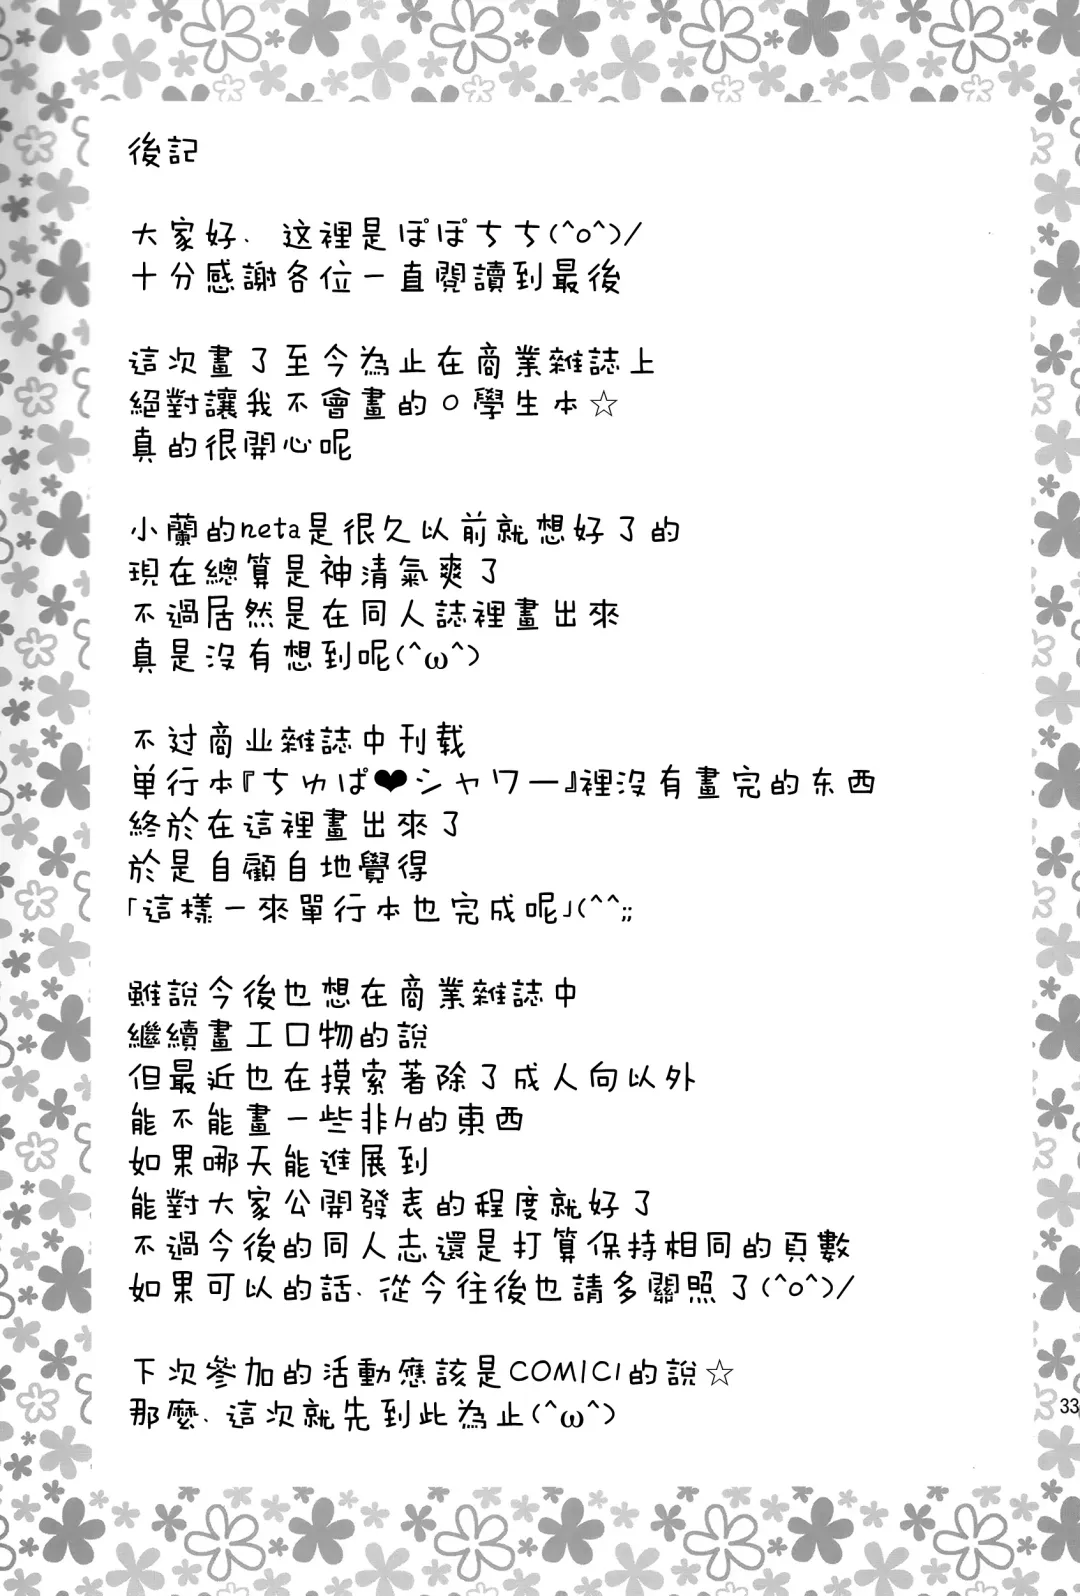 後記
大家好、这裡是ぽぽちち(^o^)/
十分感謝各位一直閱讀到最後
這次畫了至今為止在商業雜誌上
絕對讓我不會畫的○學生本☆
真的很開心呢
小蘭的neta是很久以前就想好了的
現在總算是神清氣爽了
不過居然是在同人誌裡畫出來
真是沒有想到呢(^ω^)
不过商业雜誌中刊载
単行本『ちゅぱ❤シャワー』裡沒有畫完的东西
終於在這裡畫出來了
於是自顧自地覺得
「這樣一來單行本也完成呢」(^^;;
雖說今後也想在商業雜誌中
繼續畫工口物的說
但最近也在摸索著除了成人向以外
能不能畫一些非H的東西
如果哪天能進展到
能對大家公開發表的程度就好了
不過今後的同人志還是打算保持相同的頁數
如果可以的話、從今往後也請多關照了(^o^)/
下次參加的活動應該是COMIC1的說☆
那麼、這次就先到此為止(^ω^)
33